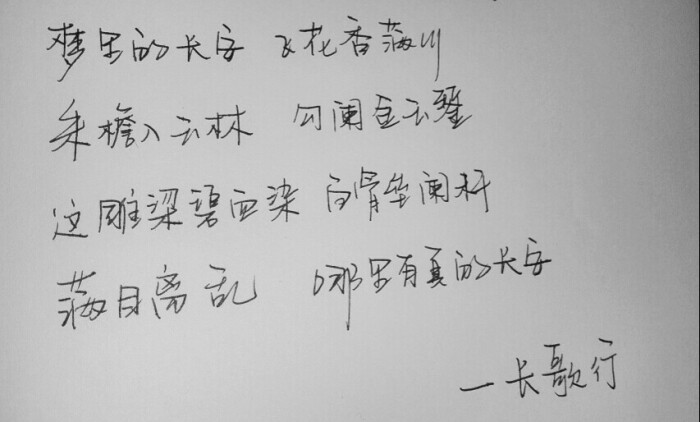 梦里的长安 飞花香满川
朱檐入云林 勾阑金玉
这雕梁碧血染 白骨垒阑杆
满目离乱 哪里有真的长安
—长歌行